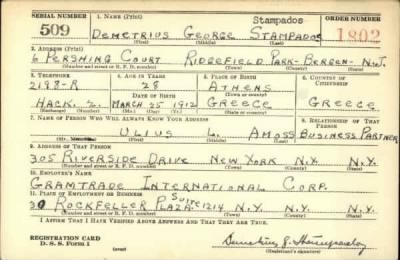 SERIAL NUMBER 1. NAME (Print) Stampados ORDER NUMBER
509 DEMETRIUS GEORGE STAMPADOS 1802
(First) (Middle) (Last)
2. ADDRESS (Print)
6 PERSHING COURT RIDGEFIELD PARK-BERGEN-N.J.
(Number and street or R. F. D. number) (Town) (County) (State)
3. TELEPHONE 4. AGE IN YEARS 5. PLACE OF BIRTH 6. COUNTRY OF CITIZENSHIP
2198-R 28 ATHENS
DATE OF BIRTH (Town or county)
HACK. 2. MARCH 25 1912 GREECE GREECE
(Exchange) (Number) (Mo.) (Day) (Yr.) (State or country)
7. NAME OF PERSON WHO WILL ALWAYS KNOW YOUR ADDRESS 8. RELATIONSHIP OF THAT PERSON
ULIUS L. AMOSS BUSINESS PARTNER
(Mr., Mrs., Miss) (First) (Middle) (Last)
9. ADDRESS OF THAT PERSON
305 RIVERSIDE DRIVE NEW YORK N.Y. N.Y.
(Number and street or R. F. D. number) (Town) (County) (State)
10. EMPLOYER'S NAME
GRAMTRADE INTERNATIONAL CORP.
11. PLACE OF EMPLOYMENT OR BUSINESS
30 ROCKFELLER PLAZA SUITE 1214 N.Y. N.Y. N.Y.
(Number and street or R. F. D. number) (Town) (County) (State)
I AFFIRM THAT I HAVE VERIFIED ABOVE ANSWERS AND THAT THEY ARE TRUE.
REGISTRATION CARD
D. S. S. Form 1 (Registrant's signature)